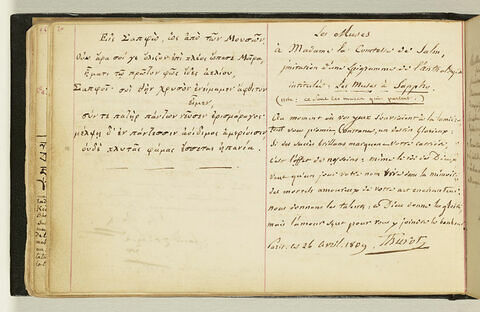 Εἰς Σαπφώ, ὡς ἀπὸ τῶν Μουσῶν
Οὐκ ἄρα σοί γε ὀλίζον ἐπὶ κλέος ὤπασε Μοῖρα
ἤματι τῷ πρῶτον φῶς ἴδες ἀελίου,
Σαπφοῖ· σοὶ γὰρ χρυσὸν ἐνίμαμεν ἄφθιτον
εἶμεν,
σὺν τε πατὴρ πάντων νεῦσεν ἐρισφάραγος·
μέλψῃ δ' ἐν πάντεσσιν ἀοίδιμος ἁμερίοισιν
οὐδὲ κλυτᾶς φάμας ἔσσεται ἠπανία.
Les Muses
à Madame la Comtesse de Salm,
imitation d'une Epigramme de l'anthologie
intitulée: Les Muses à Sappho
(nota: ce sont les muses qui parlent.)
Au moment où vos yeux s'ouvrirent à la lumière
un destin glorieux.
Si des succès brillans marquèrent votre carrière
c'est l'effet de nos soins; même le roi des Dieux
veut qu'un jour votre nom vive dans la mémoire
des mortels amoureux de votre art enchanteur:
nous donnons les talents, ce Dieu donne la gloire
mais l'amour seul peut vous y joindre le bonheur
Paris, ce 26 avril. 1809 Thurot